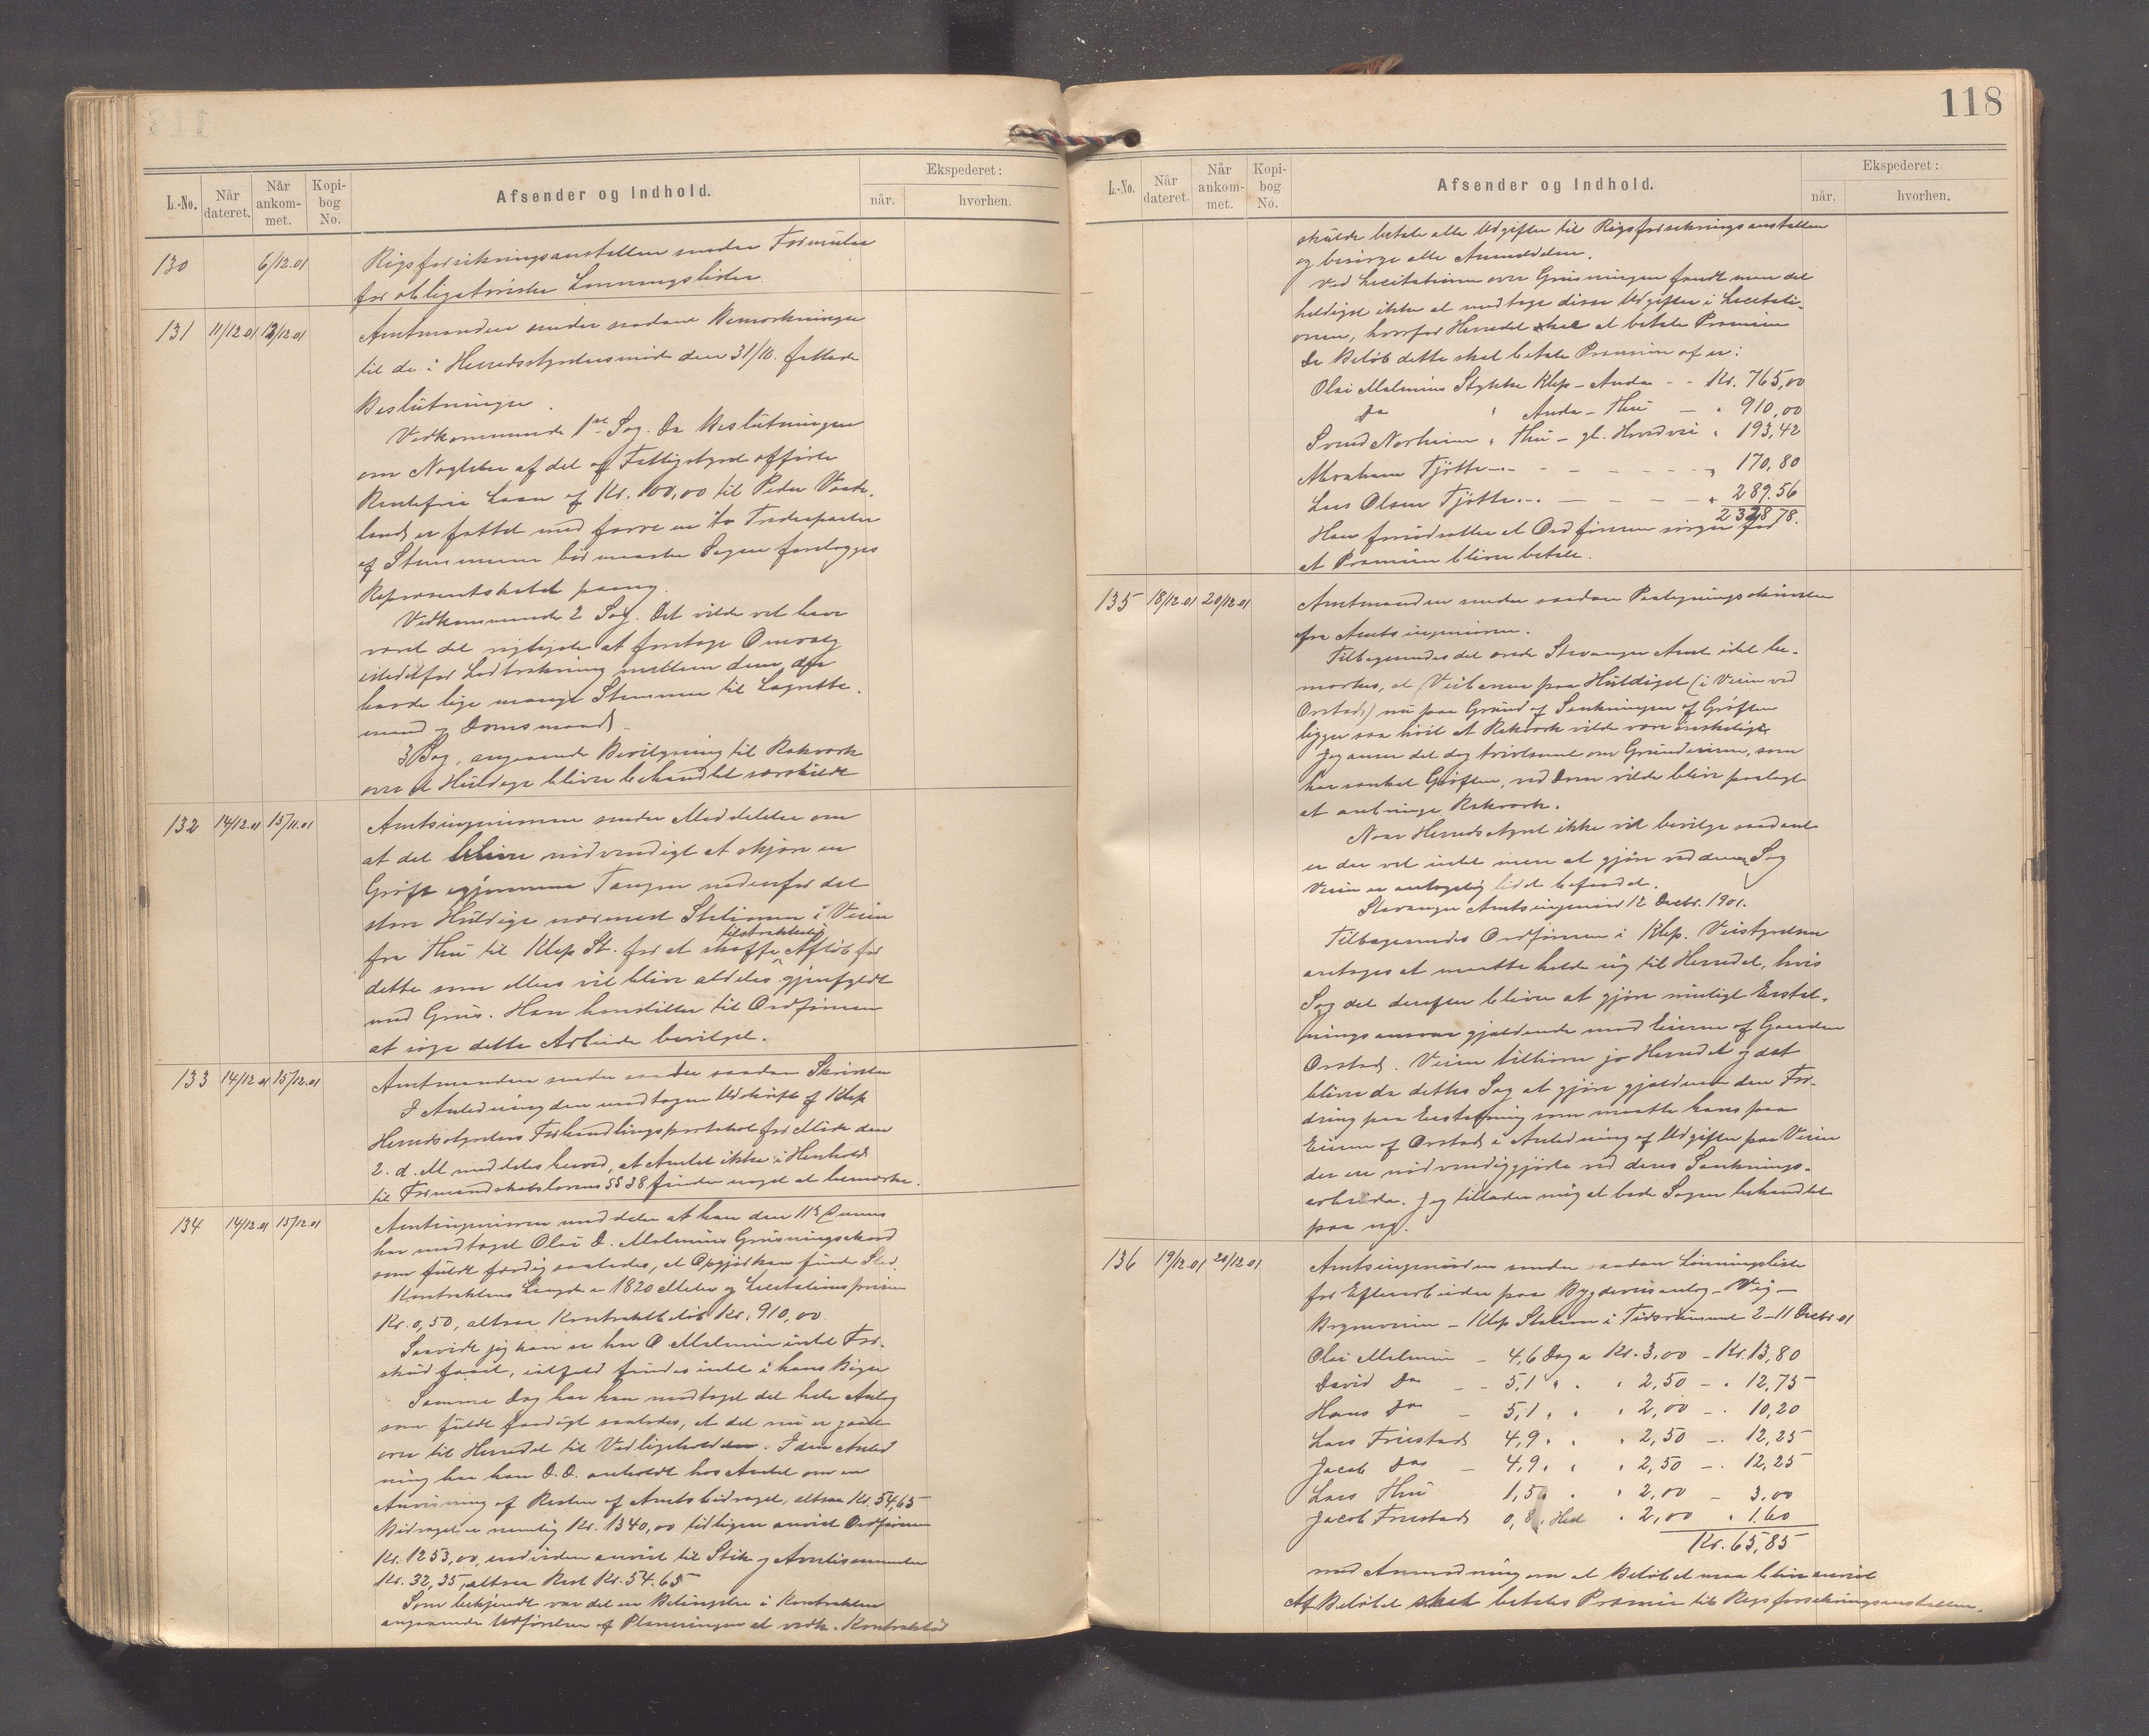 118
L.-No.
Når dateret.
Når ankommet.
Kopibog No.
Afsender og Indhold.
Ekspederet:
når.
hvorhen.
130 6/12.01 Rigsforsikringsanstalten sender Formular
for obligatoriske Lønningslister
131 11/12.01 12/12.01 Amtmanden sender saadane Bemærkninger
til de i Herredsstyrelsesmøde den 31/10. fattede
Beslutninger.
Vedkommende 1ste Sag. Da Beslutningen
om Nægtelse af det af Fattigstyret
Rentefrie Laan af Kr. 100,00 til Peder Vaade-
land er fattet med færre en to Trediparter
af Stemmerne bør maaske Sagen forelægges
Repræsentskabet paany.
Vedkommende 2 Sag. Det vilde vel have
været det rigtigste at foretage Omvalg
istedetfor Lodtrækning mellem dem der
havde lige mange Stemmer til Lagrette-
mænd og Domsmænd.
3 Sag, angaaende Bevilgning til Rækværk
over et Huldige bliver behandlet særskildt
132 14/12.01 15/11.01 Amtsingeniøren sender Meddelelse om
at det bliver nødvendigt at skjære en
Grøft igjennem Tangen nedenfor det
store Huldige nærmest Stationen i Veien
fra Thu til Klep St. for at skaffe tilstrækkelig Afløb for
dette som ellers vil blive aldeles gjenfyldt
med Grus. Han henstiller til Ordføreren
at søge dette Arbeide bevilget.
133 14/12.01 15/12.01 Amtmanden sender saadan Skrivelse
I Anledning den modtagne Udskrift af Klep
Herredsstyrelses Forhandlingsprotokol for Møde den
2. d. M. meddeles herved, at Amtet ikke i Henhold
til Formandskabslovens §§ 38 finder noget at bemærke.
134 14/12.01 15/12.01 Amtsingeniøren meddeler at han den 11te Dennes
har modtaget Olai D. Malmins Grusningsakord
som fuldt færdig saaledes, at Opgjør kan finde Sted.
Kontraktens Længde er 1820 Meter og Licitationsprisen
Kr. 0,50, altsaa Kontraktbeløb Kr. 910,00.
Saavidt jeg kan se har O Malmin intet For-
skud faaet, ialfald findes intet i hans Bøger
Samme Dag har han modtaget det hele Anlæg
som fuldt færdigt saaledes, at det nu er gaaet
over til Herredet til Vedligeholdelse. I den Anled
ning har han D.D. anholdt hos Amtet om en
Anvisning af Resten af Amtsbidraget, altsaa Kr. 54,65
Bidraget er nemlig Kr. 1340,00 tidligere anvist Ordføreren
Kr. 1253,00, endvidere anvist til Stik og
Kr. 32,35, altsaa Rest Kr. 54.65
Som bekjendt var det en Betingelse i Kontrakten
angaaende Udførelsen af Planeringen at vedk. Kontraktør
L.-No.
Når dateret.
Når ankommet.
Kopibog No.
Afsender og Indhold.
Ekspederet:
når.
hvorhen.
skulde betale alle Udgifter til Rigsforsikringsanstalten
og besørge alle Anmeldelser.
Ved Licitationen over Grusningen fandt man det
heldigst ikke at medtage disse Udgifter i Licitati-
onen, hvorfor Herredet skal at betale Præmien
De Beløb dette skal betale Præmien af er:
Olai Malmins Stykke Klep – Anda – - Kr. 765,00
Do " Anda – Thu – " 910,00
Svend Norheim " Thu – gl. Hovedvei " 193,42
Abraham Tjøtta – - – – – – " 170,80
Lars Olsen Tjøtta – – – – " 289.56
2328 78.
Han forudsætter at Ordføreren sørger for
at Præmien bliver betalt.
135 18/12.01 20/12.01 Amtmanden sender saadan Paategningsskrivelse
fra Amtsingeniøren.
Tilbagesendes det ærede Stavanger Amt idet be-
mærkes, at Veibanen paa Huldiget (i Veien ved
Orstad) nu paa Grund af Senkningen af Grøften
ligger saa høit at Rækværk vilde være ønskeligt.
Jeg anser det dog tvivlsomt om Grundeieren, som
har sænket Grøften, ved Dom vilde blive paalagt
at anbringe Rækværk.
Naar Herredsstyret ikke vil bevilge saadant
er der vel intet mere at gjøre ved denne Sag
Veien er antagelig lidet befaret.
Stavanger Amtsingeniør 12 Decbr. 1901.
Tilbagesendes Ordføreren i Klep. Veistyrelsen
antages at maatte holde sig til Herredet, hvis
Sag det derefter bliver at gjøre muligt Erstat-
ningsansvar gjældende mod Eieren af Gaarden
Orstad. Veien tilhører jo Herredet og det
bliver da dettes Sag at gjøre gjældende den For-
dring paa Erstatning som maatte haves paa
Eieren af Orstad i Anledning af Udgifter paa Veien
der er nødvendiggjorte ved deres Sænknings-
arbeide. Jeg tillader mig at bede Sagen behandlet
paa ny.
136 19/12.01 20/12.01 Amtsingeniøren sender saadan Lønningsliste
for Efterarbeider paa Bygdeveisanlæg – Vig –
Bryneveien – Klep Station i Tidsrummet 2–11 Decbr 01
Olai Malmin – 4,6 Dag a Kr. 3,00 – Kr. 13,80
David Do – - 5,1 " " " 2,50 – " 12,75
Hans Do – 5,1 " " " 2,00 – " 10,20
Lars Friestad 4,9 " " " 2,50 – " 12,25
Jacob Do – 4,9 " " " 2,50 – " 12,25
Lars Thu 1,50 " " 2,00 – 3,00
Jacob Friestad 0,8 " Hest " 2,00 " 1.60
Kr. 65,85
med Anmodning om at Beløbet maa blive anvist
Af Beløbet skal betales Præmie til Rigsforsikringsanstalten.